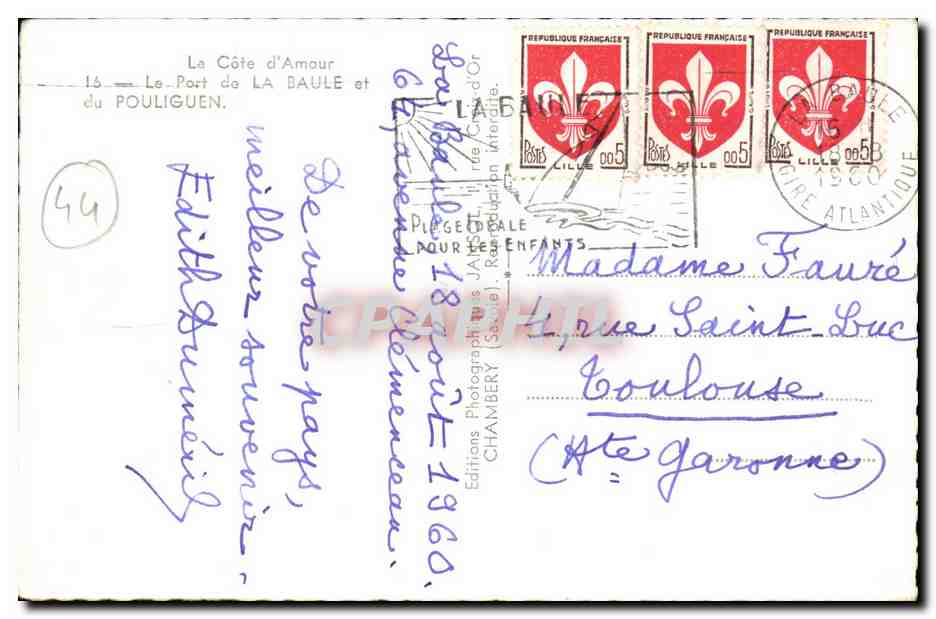 La Côte d'Amour
16 — Le Port de LA BAULE et
du POULIGUEN.
44
La Baule 18 août 1960.
62, avenue Clémenceau.
De votre pays,
meilleur souvenir.
Edith Duméril
Editions Photographiques JANSOL, rue Croix-d'Or
CHAMBERY (Savoie). Reproduction interdite.
REPUBLIQUE FRANÇAISE
POSTES
LILLE 005
REPUBLIQUE FRANÇAISE
POSTES
LILLE 005
REPUBLIQUE FRANÇAISE
POSTES
LILLE 005
LA BAULE
PLAGE IDÉALE
POUR LES ENFANTS
LA BAULE
1960
LOIRE ATLANTIQUE
Madame Fauré
4, rue Saint-Luc
Toulouse
(Hte Garonne)
CPAPHIL